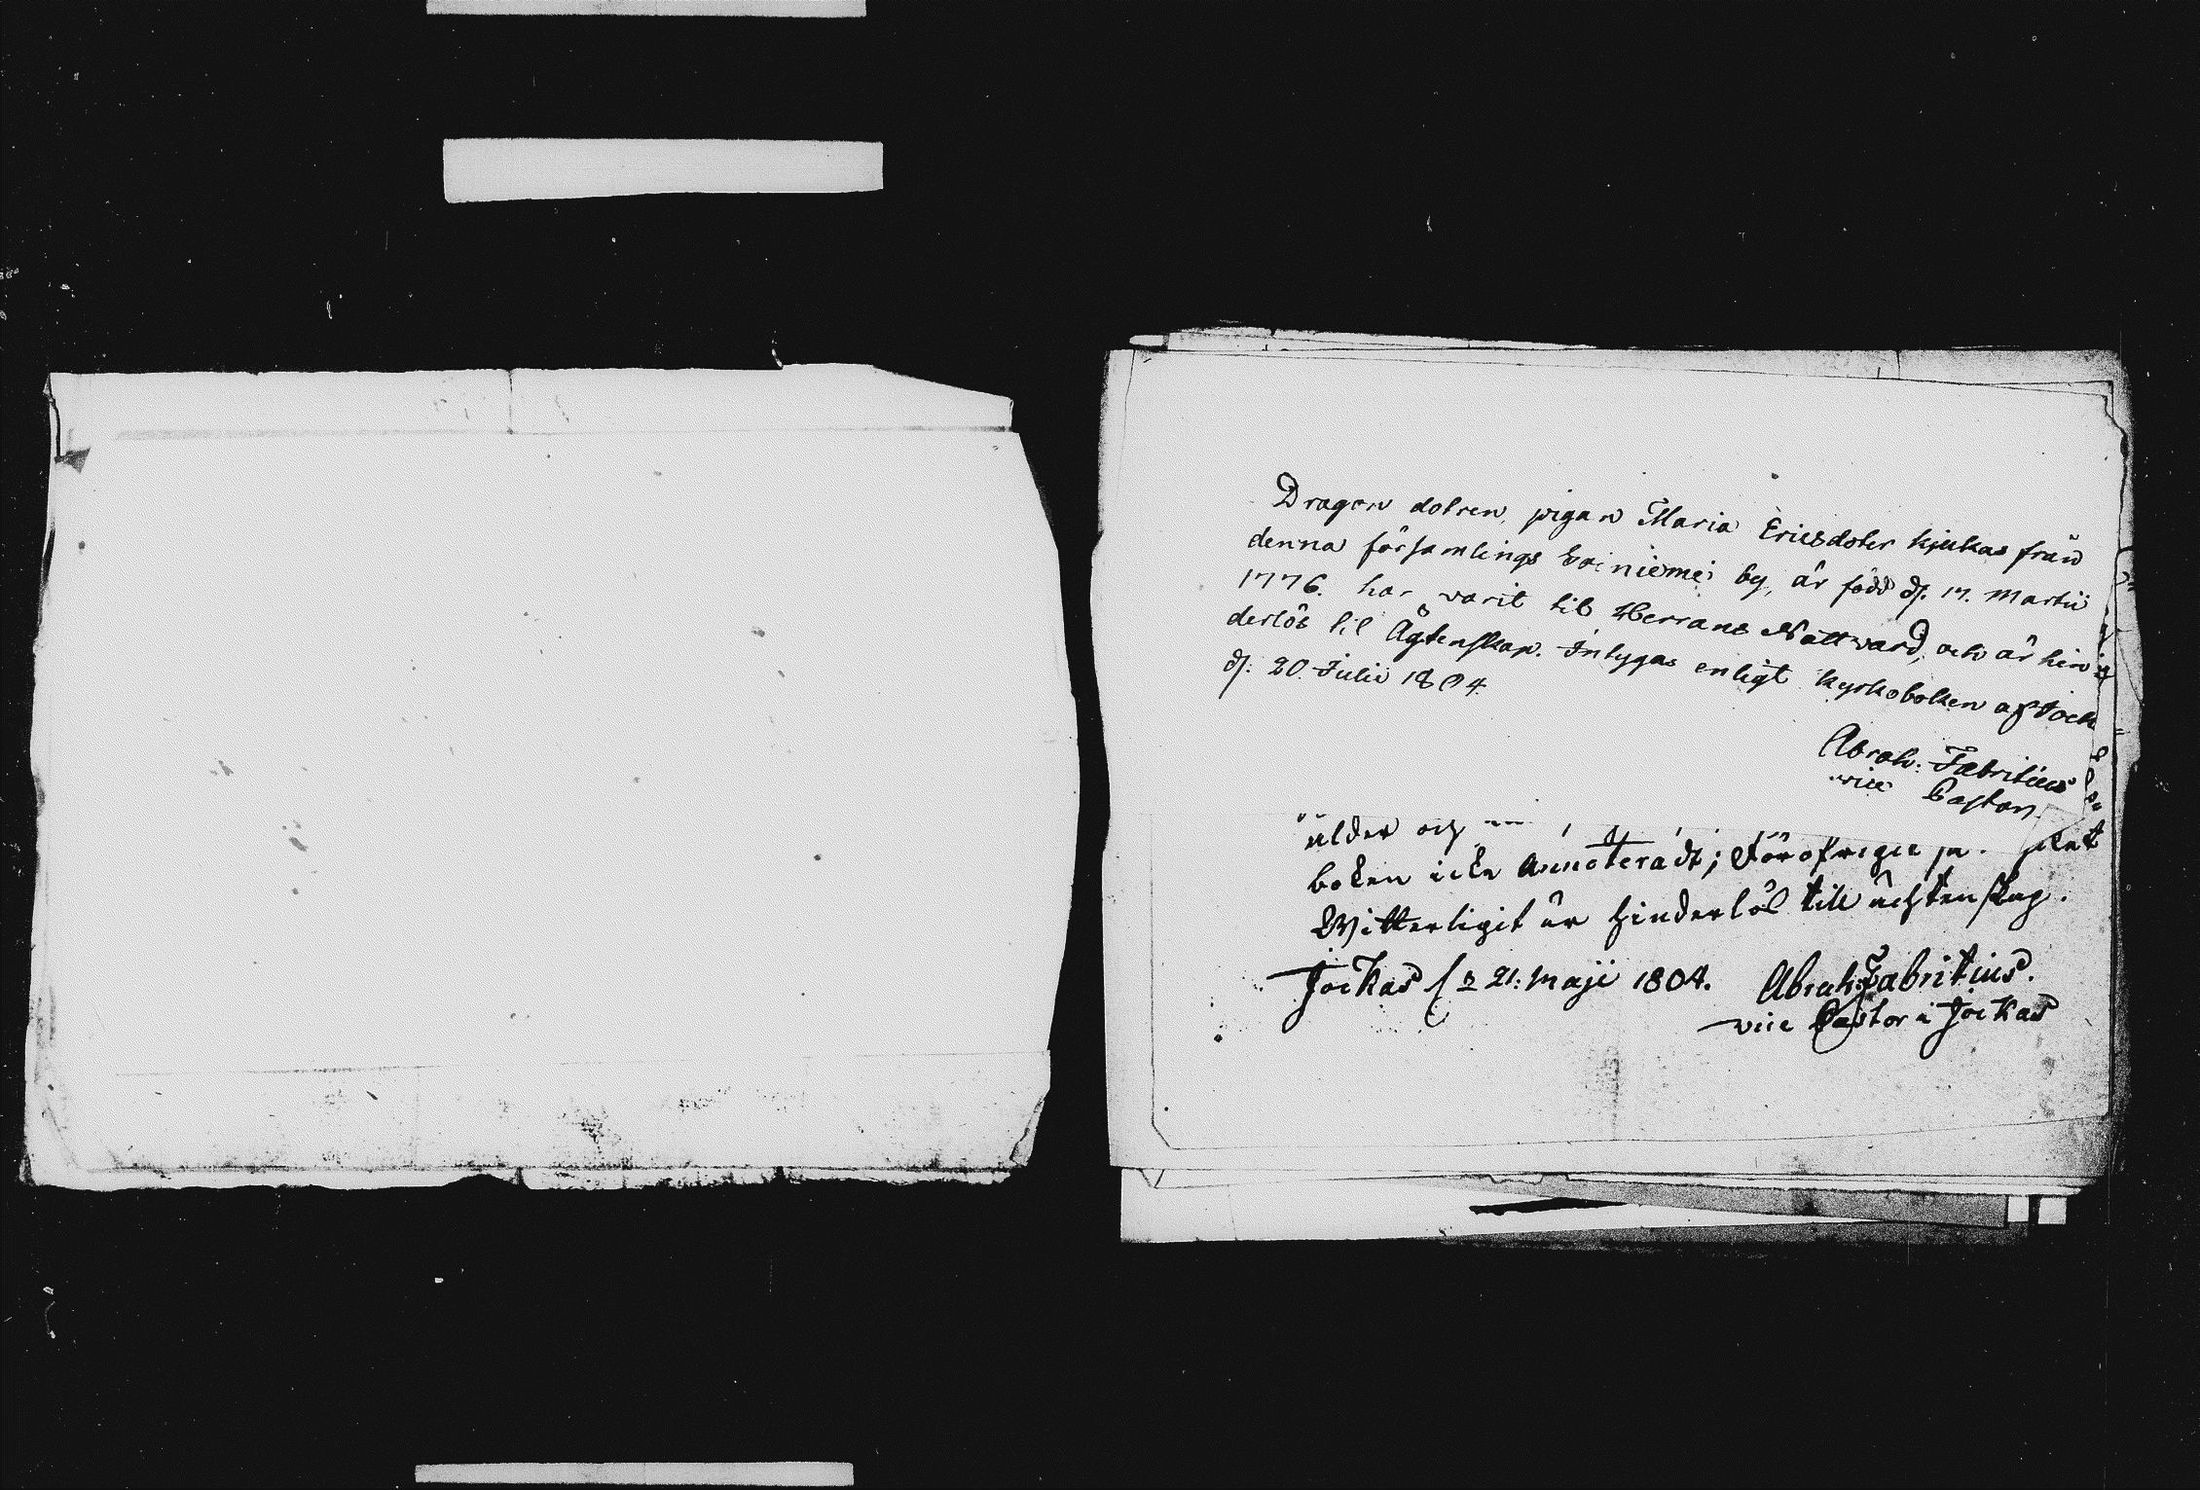 Dragon dotren, pigan Maria Ericsdoter Kjukas från
denna församlings Woiniemei by, är född d. 17. Martii
1776. har varit til Herrans Nattvard, och är hin
derlös til Ägtenskap. Intygas enligt kyrkoboken af Jock
d. 20. Julii 1804.
Abrah: Fabritius
vice Pastor.
ålder och
boken icke Annoteradt; Föröfrigit
Witterligit är hinderlös till ächtenskap.
Jockas d 21: Maji 1804. Abrah: Fabritius.
vice Pastor i Jockas